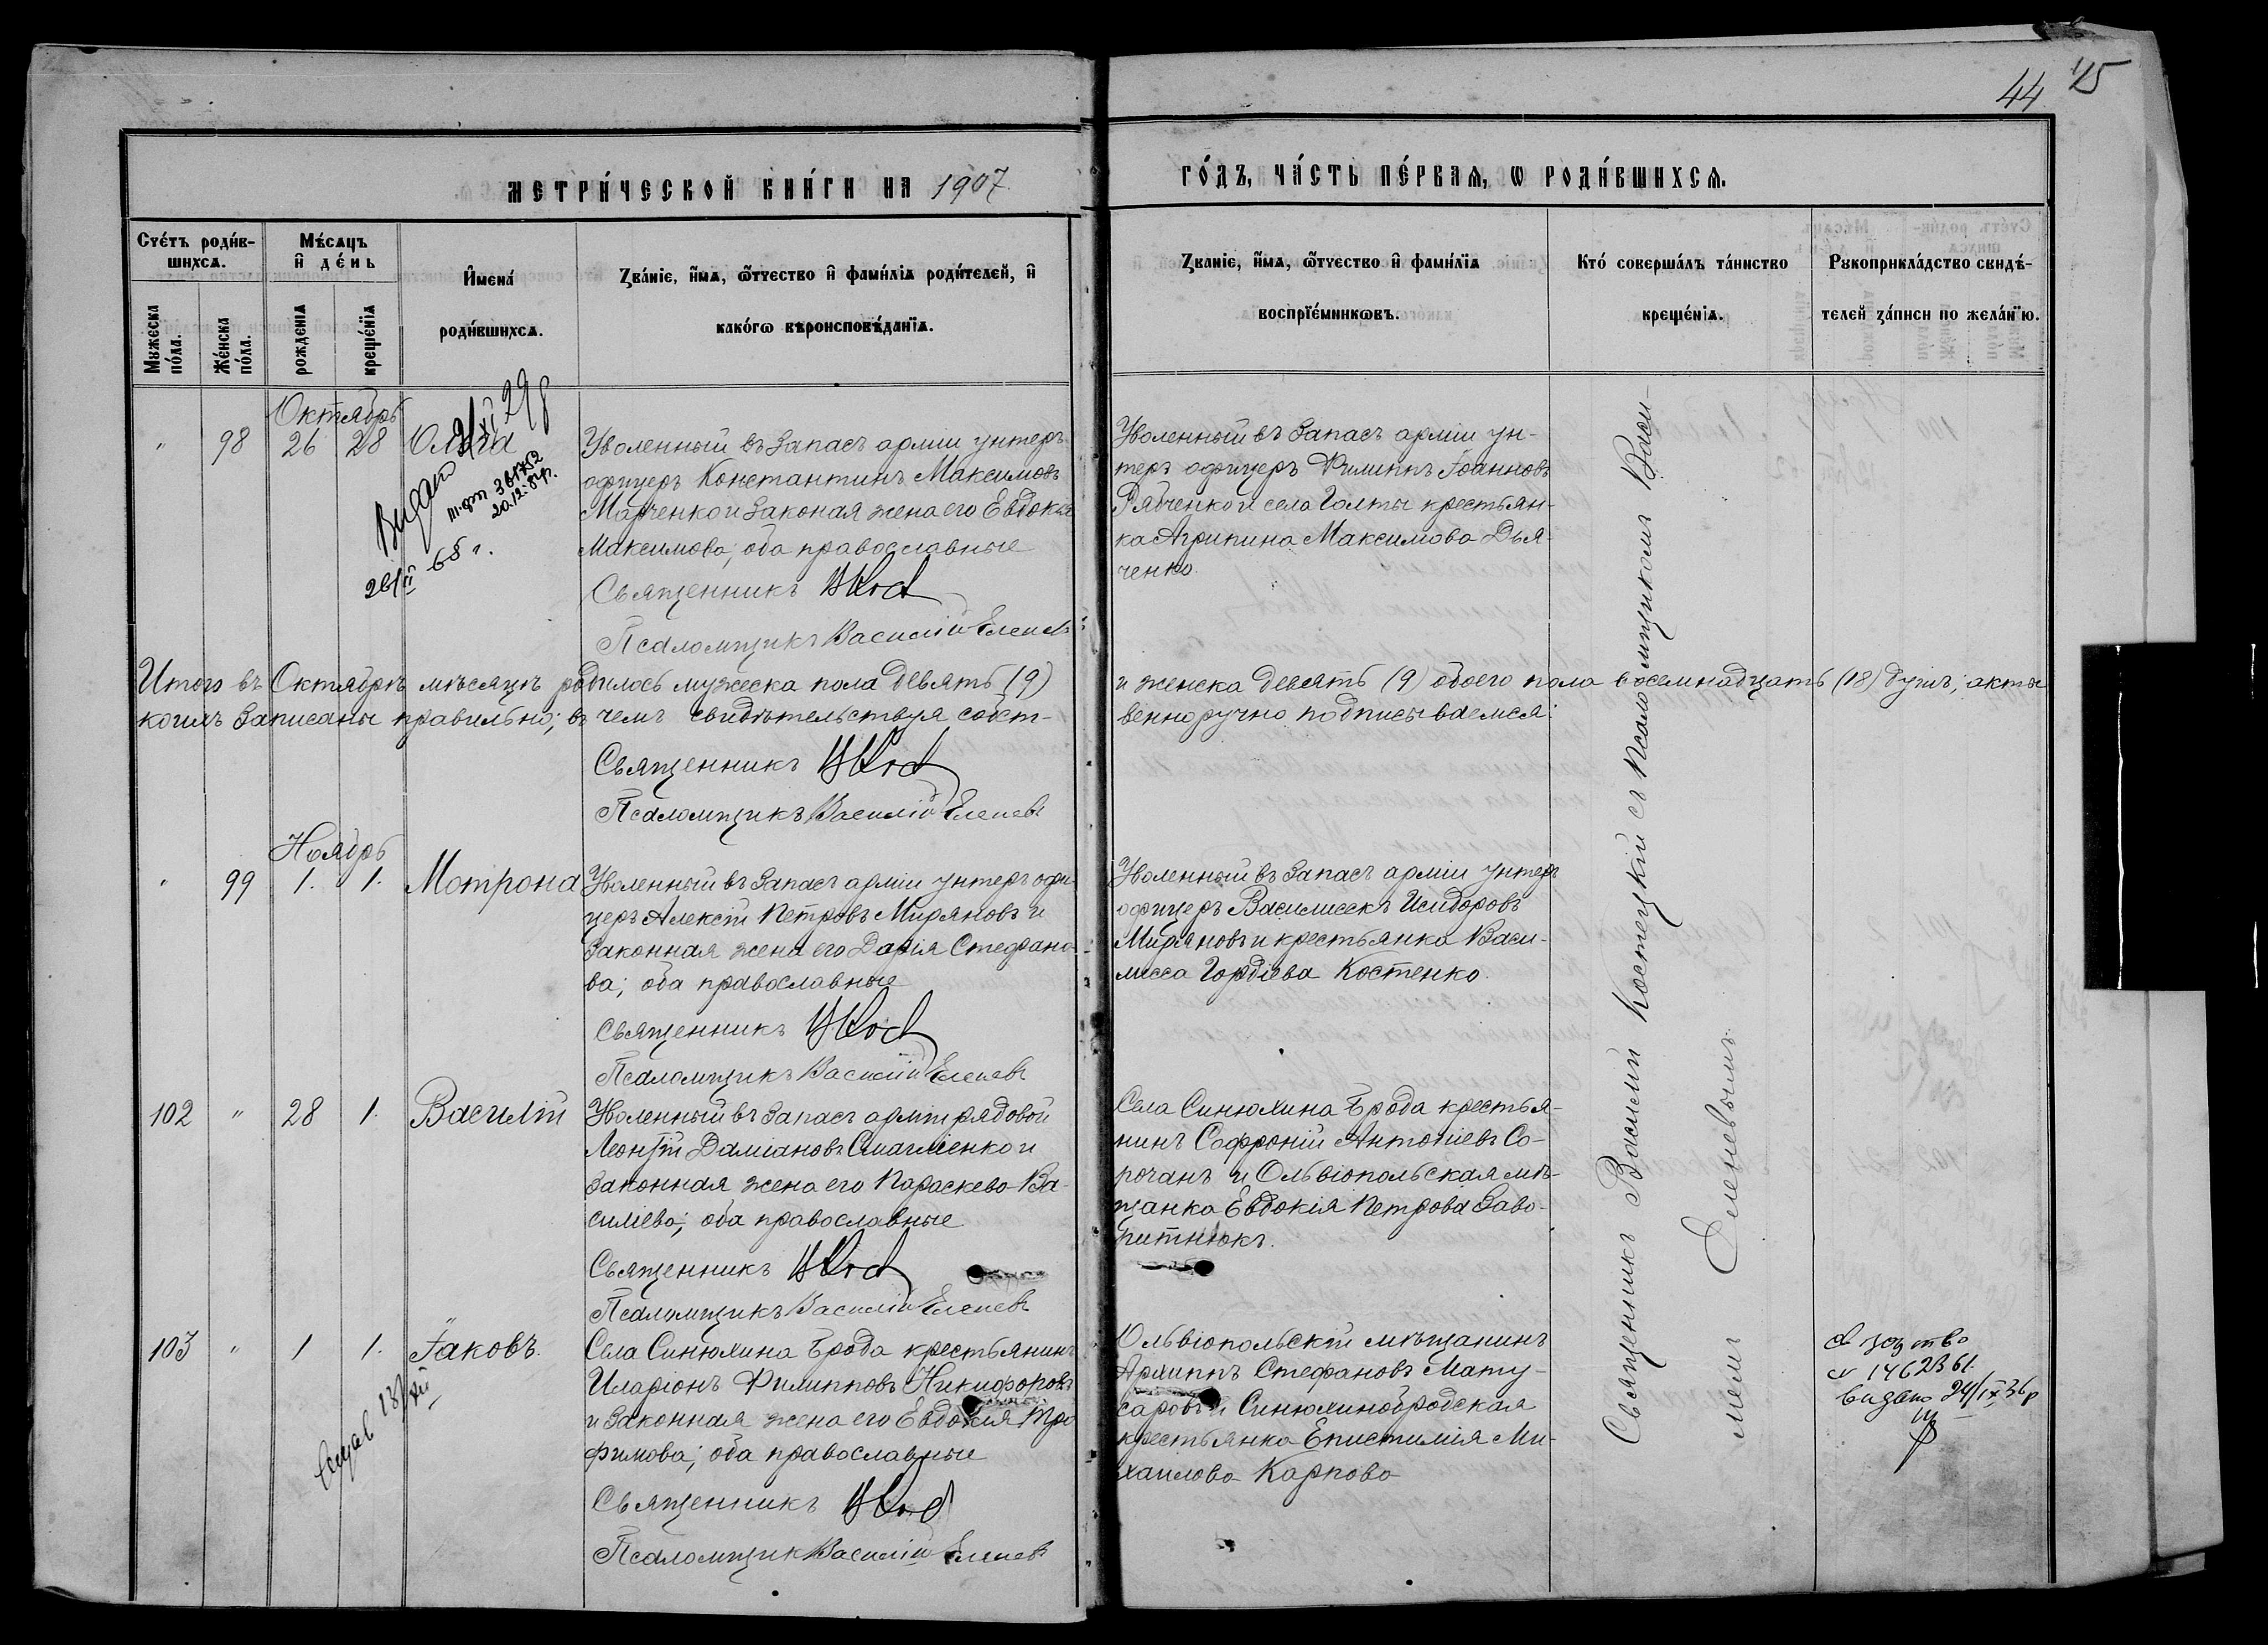 44 45
МЕТРИ́ЧЕСКОЙ КНИ́ГИ НА 1907
ГО́ДЪ, ЧА́СТЬ ПЕ́РВАѦ, Ѡ РОДИ́ВШИХСѦ.
Сче́тъ роди́в-
шихсѧ.
Мѣ́сѧцъ
и де́нь
Мꙋжеска по́ла.
Же́нска по́ла.
рожденїѧ
креще́нїѧ
Имена́
роди́вшихсѧ.
Зва́нїе, и́мѧ, ѻ҆́тчество и҆ фами́лїѧ роди́телей, и҆
како́гѡ вѣроисповѣ́данїѧ.
Зва́нїе, и́мѧ, ѻ҆́тчество и҆ фами́лїѧ
воспрїе́мникѡвъ.
Кто́ соверша́лъ та́инство
креще́нїѧ.
Рꙋкоприкла́дство свидѣ́-
телей за́писи по жела́нїю.
Октябрь
" 98 26 28 Ольга
Видано
20.12.
28/II 68 г.
Уволенный въ запасъ арміи унтеръ
офицеръ Константинъ Максимовъ
Марченко и законая жена его Евдокія
Максимова; оба православные
Священникъ
Псаломщикъ Василій Еленевъ
Уволенный въ запасъ арміи ун-
теръ офицеръ Филиппъ Іоанновъ
Рябченко и села Голты крестьян-
ка Агрипина Максимова Дья-
ченко.
Итого въ Октябрѣ мѣсяцѣ родилось мужеска пола девять (9) и женска девять (9) обоего пола восемнадцать (18) душъ; акты
коихъ записаны правильно; въ чемъ свидѣтельствуя собст- венноручно подписываемся:
Священникъ
Псаломщикъ Василій Еленевъ
Ноябрь
" 99 1. 1. Мотрона
Уволенный въ запасъ арміи унтеръ офи-
церъ Алексѣй Петровъ Миряновъ и
законная жена его Дарія Стефано-
ва; оба православные
Священникъ
Псаломщикъ Василій Еленевъ
Уволенный въ запасъ арміи унтеръ
офицеръ Василискъ Исидоровъ
Мирянов и крестьянка Васи-
лисса Гордіева Костенко.
102 " 28 1. Василій
Уволенный въ запасъ арміи рядовой
Леонтій Даміановъ Смагліенко и
законная жена его Параскева Ва-
силіева; оба православные
Священникъ
Псаломщикъ Василій Еленевъ
Села Синюхина Брода крестья-
нинъ Софроній Антоніевъ Со-
рочанъ и Ольвіопольская мѣ-
щанка Евдокія Петрова Заво-
ритнюкъ.
103 " 1 1. Іаковъ.
Села Синюхина Брода крестьянинъ
Иларіонъ Филипповъ Никифоровъ
и законная жена его Евдокія Тро-
фимова; оба православные
Священникъ
Псаломщикъ Василій Еленевъ
Ольвіопольскій мѣщанинъ
Архиппъ Стефановъ Мату-
саровъ и Синюхинобродская
крестьянка Епистимія Ми-
хаилова Карпова
Священникъ Василій Костецкій съ псаломщикомъ Васи-
ліемъ Еленевымъ.
1462361.
видано 24/IX 36 р